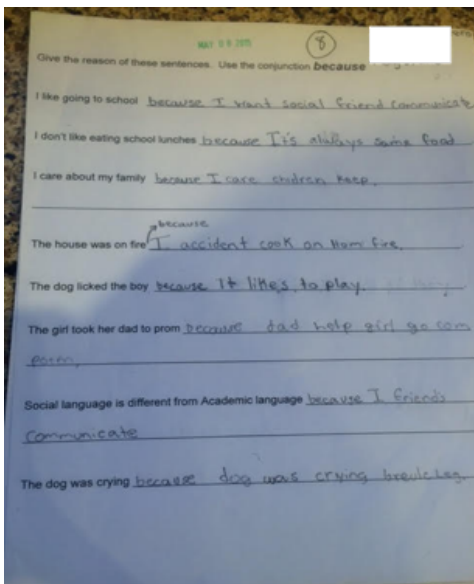 MAY 09 2015
8
Give the reason of these sentences. Use the conjunction because
I like going to school because I want social friend communicate
I don't like eating school lunches because It's always same food
I care about my family because I care chidren keep.
because
The house was on fire I accident cook on Hom fire.
The dog licked the boy because It likes to play.
The girl took her dad to prom because dad help girl go com
Social language is different from Academic language because I friends
communicate
The dog was crying because dog was crying leg.